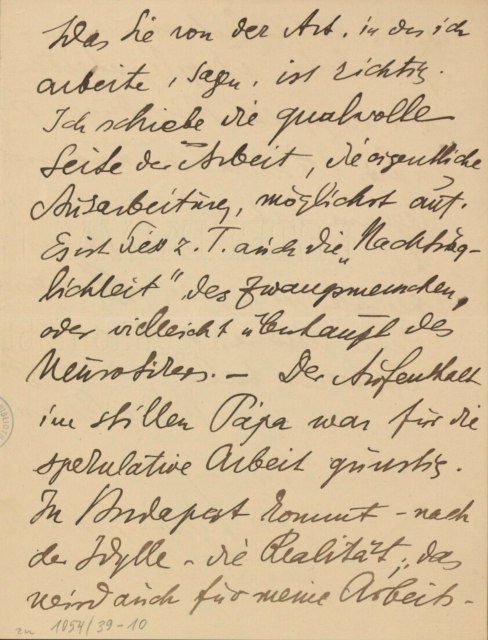 Was Sie von der Art, in der ich
arbeite, sagen, ist richtig.
Ich schiebe die qualvolle
Seite der Arbeit, die eigentliche
Ausarbeitung, möglichst auf.
Es ist dies z. T. auch die „Nachträg-
lichkeit" des Zwangsmenschen,
oder vielleicht überhaupt des
Neurotikers. — Der Aufenthalt
im stillen Pápa war für die
spekulative Arbeit günstig.
In Budapest kommt - nach
der Idylle - die Realität; das
wird auch für meine Arbeits-
zu 1054/39-10